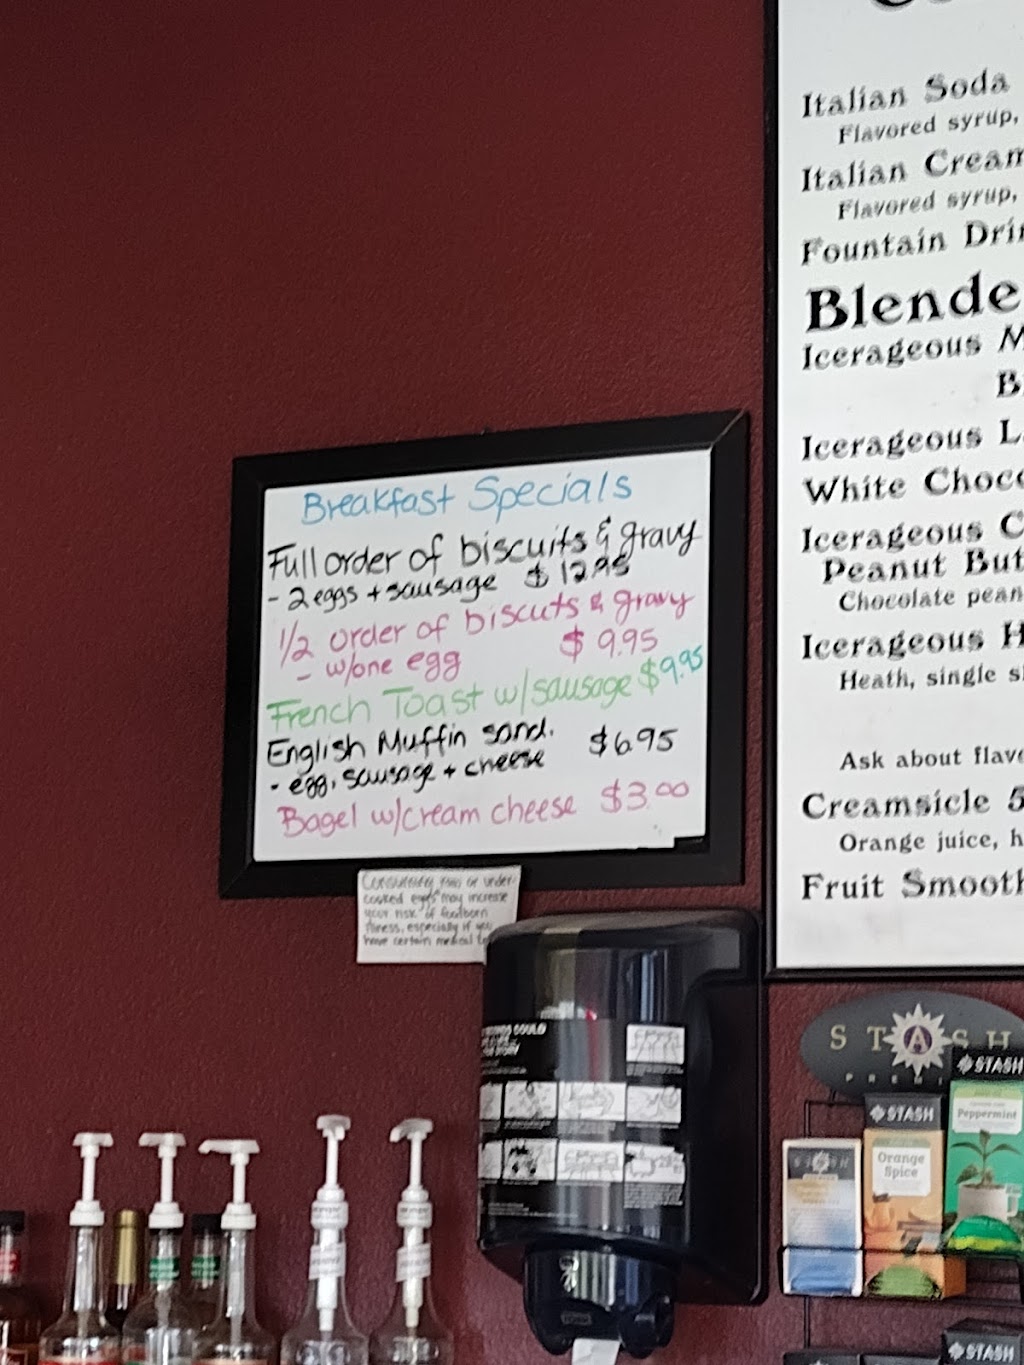 Breakfast Specials
Full order of biscuits & gravy
- 2 eggs + sausage $12.95
1/2 order of biscuts & gravy
- w/one egg $9.95
French Toast w/sausage $9.95
English Muffin sand. $6.95
- egg, sausage + cheese
Bagel w/cream cheese $3.00
Consuming raw or under-
cooked eggs may increase
your risk of foodborn
illness, especially if you
have certain medical
Italian Soda
Flavored syrup,
Italian Cream
Flavored syrup,
Fountain Drin
Blende
Icerageous M
B
Icerageous L
White Choco
Icerageous C
Peanut But
Chocolate pean
Icerageous H
Heath, single s
Ask about flav
Creamsicle 5
Orange juice, h
Fruit Smooth
COULD
STASH
PREMI
STASH
STASH
Peppermint
STASH
Orange
Spice
STASH